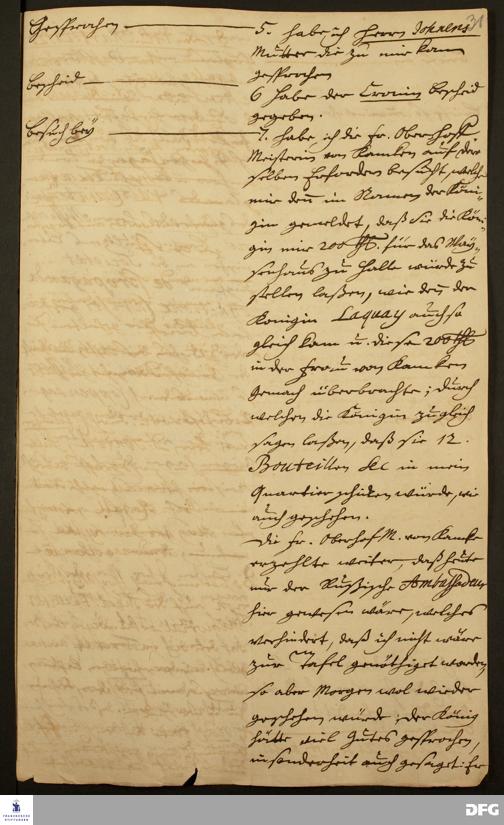 31
Gesprochen
5. habe ich Herrn Johrens
Mutter die zu mir kam
gesprochen
bescheid
6 habe der Cronin bescheid
gegeben.
besuch bey
7. habe ich die Fr. Oberhoff
Meisterin von Kamken auf der
selben Erfordern besucht, welche
mir den im Namen der Köni-
gin gemeldet, daß sie die Köni-
gin mir 200 für das Wäy-
senhaus zu Halle würde zu
stellen laßen, wie den der
Königin Laquay auch so
gleich kam u. diese 200
in der Frau von Kamken
Gemach überbrachte; durch
welchen die Königin zugleich
sagen laßen, daß sie 12.
Bouteillen Sec in mein
Quartier schicken würde, wie
auch geschehen.
Die Fr. Oberhof M. von Kamke
erzehlte weiter, daß heute
nur der Rußische Ambassadeur
hier gewesen wäre, welches
verhindert, daß ich nicht wäre
zur Tafel genöthiget worden,
so aber Morgen wol wieder
geschehen würde; der König
hätte viel Gutes gesprochen,
insonderheit auch gesaget: Er
FRANCKESCHE
STIFTUNGEN
DFG